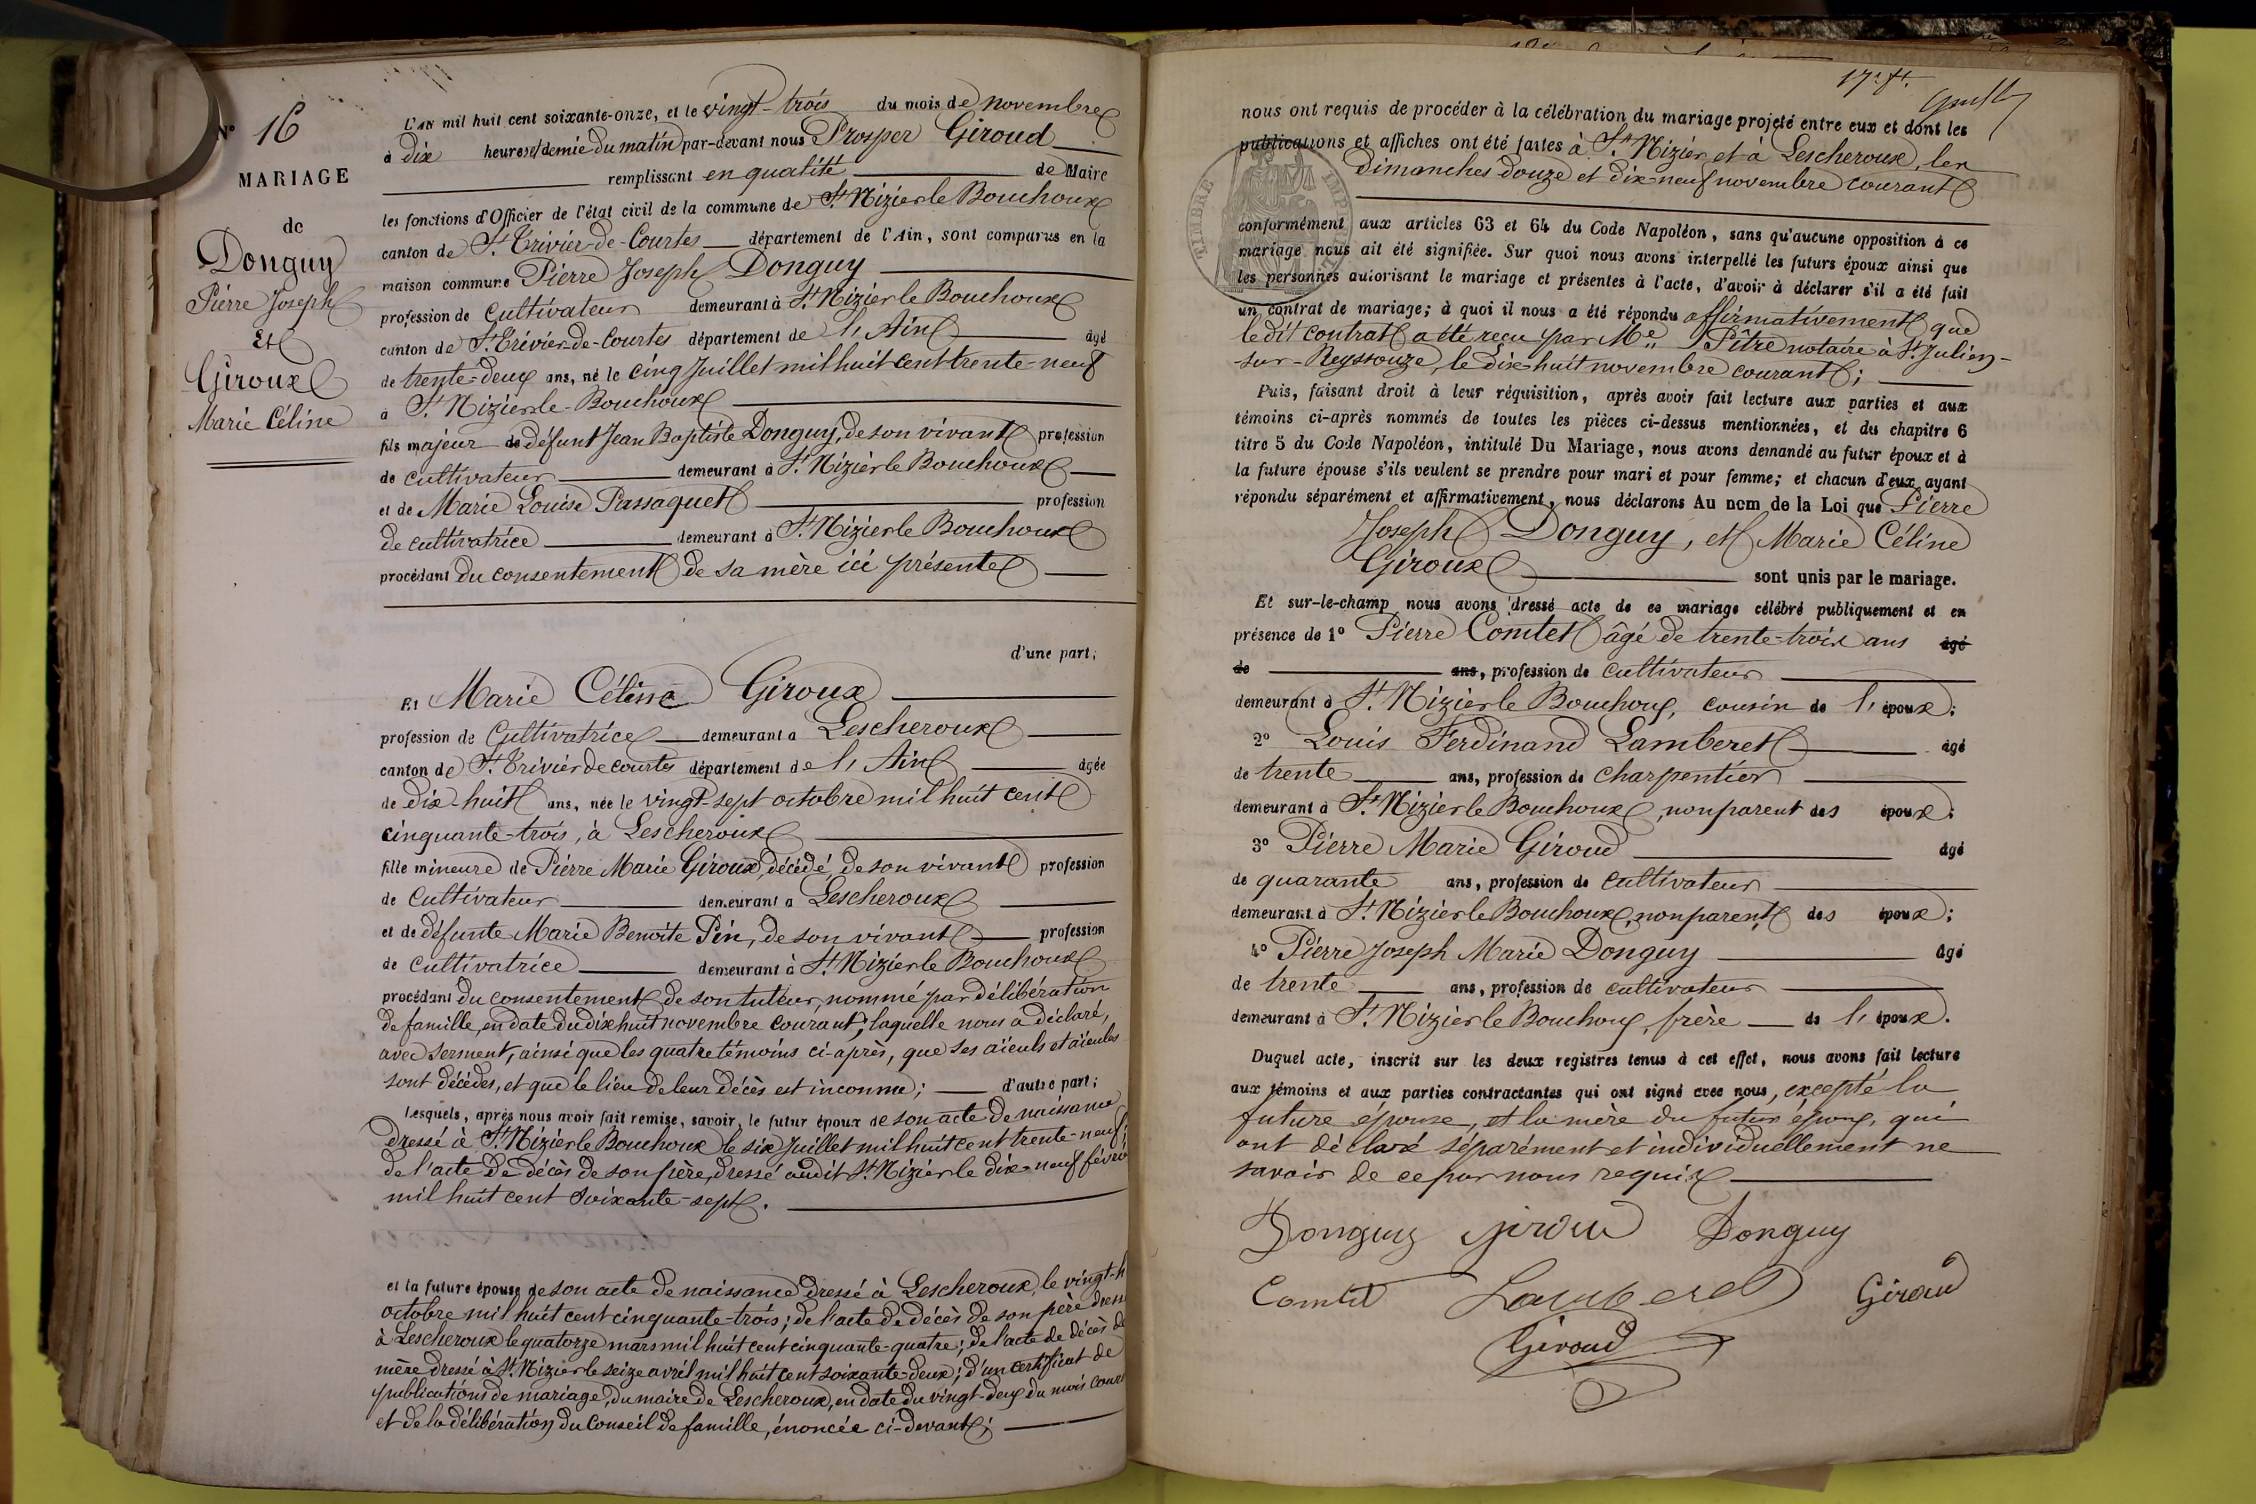 N° 16
MARIAGE
de
Donguy
Pierre Joseph
Et
Giroux
Marie Céline
L'AN mil huit cent soixante-onze, et le vingt-trois du mois de novembre
à dix heures et demie du matin par-devant nous Prosper Giroud
remplissant en qualité de Maire
les fonctions d'Officier de l'état civil de la commune de St Nizier le Bouchoux
canton de St Trivier-de-Courtes département de l'Ain, sont comparus en la
maison commune Pierre Joseph Donguy
profession de Cultivateur demeurant à St Nizier le Bouchoux
canton de St Trivier-de-Courtes département de l'Ain âgé
de trente-deux ans, né le cinq Juillet mil huit cent trente-neuf
à St Nizier le Bouchoux
fils majeur de défunt Jean Baptiste Donguy, de son vivant profession
de cultivateur demeurant à St Nizier le Bouchoux
et de Marie Louise Passaquet profession
de cultivatrice demeurant à St Nizier le Bouchoux
procédant du consentement de sa mère ici présente
d'une part;
Et Marie Céline Giroux
profession de Cultivatrice demeurant à Lescheroux
canton de St Trivier de courtes département de l'Ain âgée
de dix-huit ans, née le vingt-sept octobre mil huit cent
cinquante-trois, à Lescheroux
fille mineure de Pierre Marie Giroux, décédé, de son vivant profession
de Cultivateur demeurant à Lescheroux
et de défunte Marie Benoîte Pin, de son vivant profession
de cultivatrice demeurant à St Nizier le Bouchoux
procédant du consentement de son tuteur, nommé par délibération
de famille, en date du dix huit novembre courant; laquelle nous a déclaré,
avec serment, ainsi que les quatre témoins ci-après, que ses aïeuls et aïeules
sont décédés, et que le lieu de leur décès est inconnu; d'autre part;
Lesquels, après nous avoir fait remise, savoir, le futur époux de son acte de naissance
dressé à St Nizier le Bouchoux le six Juillet mil huit cent trente-neuf;
de l'acte de décès de son père, dressé audit St Nizier le dix-neuf févri
mil huit cent soixante-sept.
et la future épouse de son acte de naissance dressé à Lescheroux, le vingt-h
octobre mil huit cent cinquante-trois; de l'acte de décès de son père dress
à Lescheroux le quatorze mars mil huit cent cinquante-quatre; de l'acte de décès de
mère dressé à St Nizier le seize avril mil huit cent soixante-deux; d'un certificat de
publications de mariage, du maire de Lescheroux, en date du vingt-deux du mois cour
et de la délibération du Conseil de famille, énoncée ci-devant;
nous ont requis de procéder à la célébration du mariage projeté entre eux et dont les
publications et affiches ont été faites à St Nizier et à Lescheroux, les
Dimanches douze et dix-neuf novembre courant
conformément aux articles 63 et 64 du Code Napoléon, sans qu'aucune opposition à ce
mariage nous ait été signifiée. Sur quoi nous avons interpellé les futurs époux ainsi que
les personnes autorisant le mariage et présentes à l'acte, d'avoir à déclarer s'il a été fait
un contrat de mariage; à quoi il nous a été répondu affirmativement que
ledit contrat a été reçu par Me Pître notaire à St Julien-
sur-Reyssouze, le dix-huit novembre courant;
Puis, faisant droit à leur réquisition, après avoir fait lecture aux parties et aux
témoins ci-après nommés de toutes les pièces ci-dessus mentionnées, et du chapitre 6
titre 5 du Code Napoléon, intitulé Du Mariage, nous avons demandé au futur époux et à
la future épouse s'ils veulent se prendre pour mari et pour femme; et chacun d'eux ayant
répondu séparément et affirmativement, nous déclarons Au nom de la Loi que Pierre
Joseph Donguy, et Marie Céline
Giroux sont unis par le mariage.
Et sur-le-champ nous avons dressé acte de ce mariage célébré publiquement et en
présence de 1° Pierre Comtet âgé de trente-trois ans âgé
de ans, profession de cultivateur
demeurant à St Nizier le Bouchoux, cousin de l'époux;
2° Louis Ferdinand Lamberet âgé
de trente ans, profession de charpentier
demeurant à St Nizier le Bouchoux, non parent des époux;
3° Pierre Marie Giroud âgé
de quarante ans, profession de cultivateur
demeurant à St Nizier le Bouchoux, non parent des époux;
4° Pierre Joseph Marie Donguy âgé
de trente ans, profession de cultivateur
demeurant à St Nizier le Bouchoux, frère de l'époux.
Duquel acte, inscrit sur les deux registres tenus à cet effet, nous avons fait lecture
aux témoins et aux parties contractantes qui ont signé avec nous, excepté la
future épouse, et la mère du futur époux, qui
ont déclaré séparément et individuellement ne
savoir de ce par nous requis
Donguy Giroud Donguy
Comtet Lamberet Giroud
Giroud